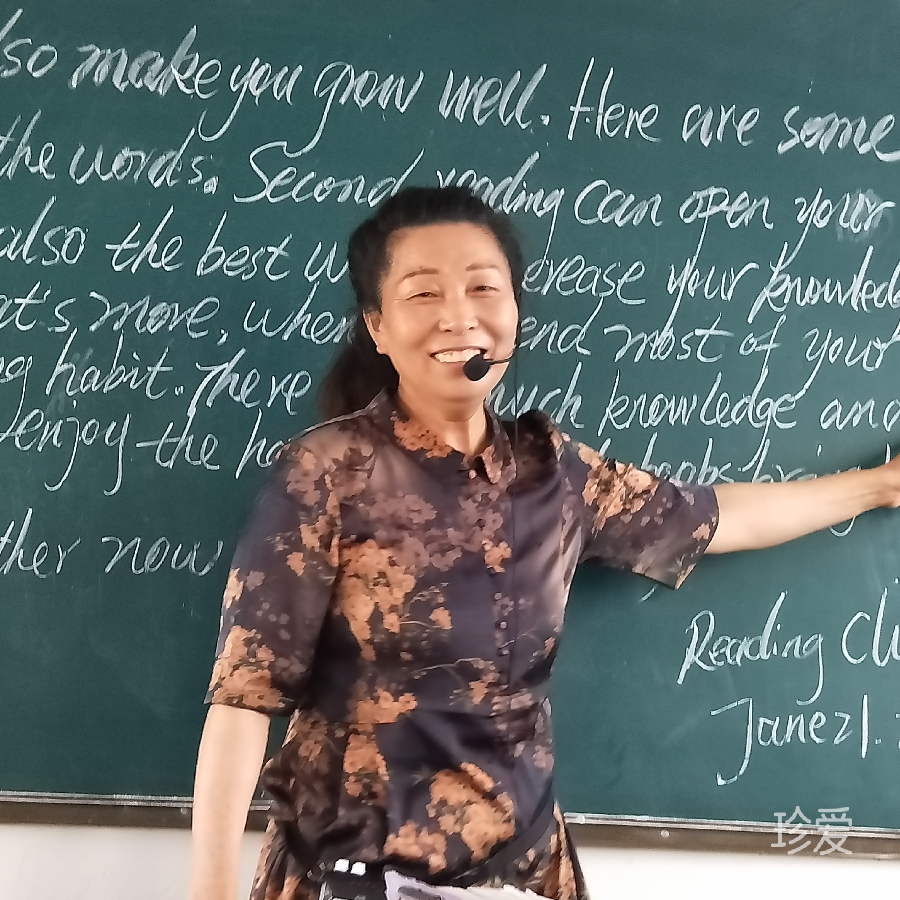 lso make you grow well. Here are some
the words. Second reading can open your
also the best w crease your knowled
at's more, when end most of your
ng habit. There much knowledge and
enjoy the ha books bring
ther now
Reading Clu
June 21.
珍爱